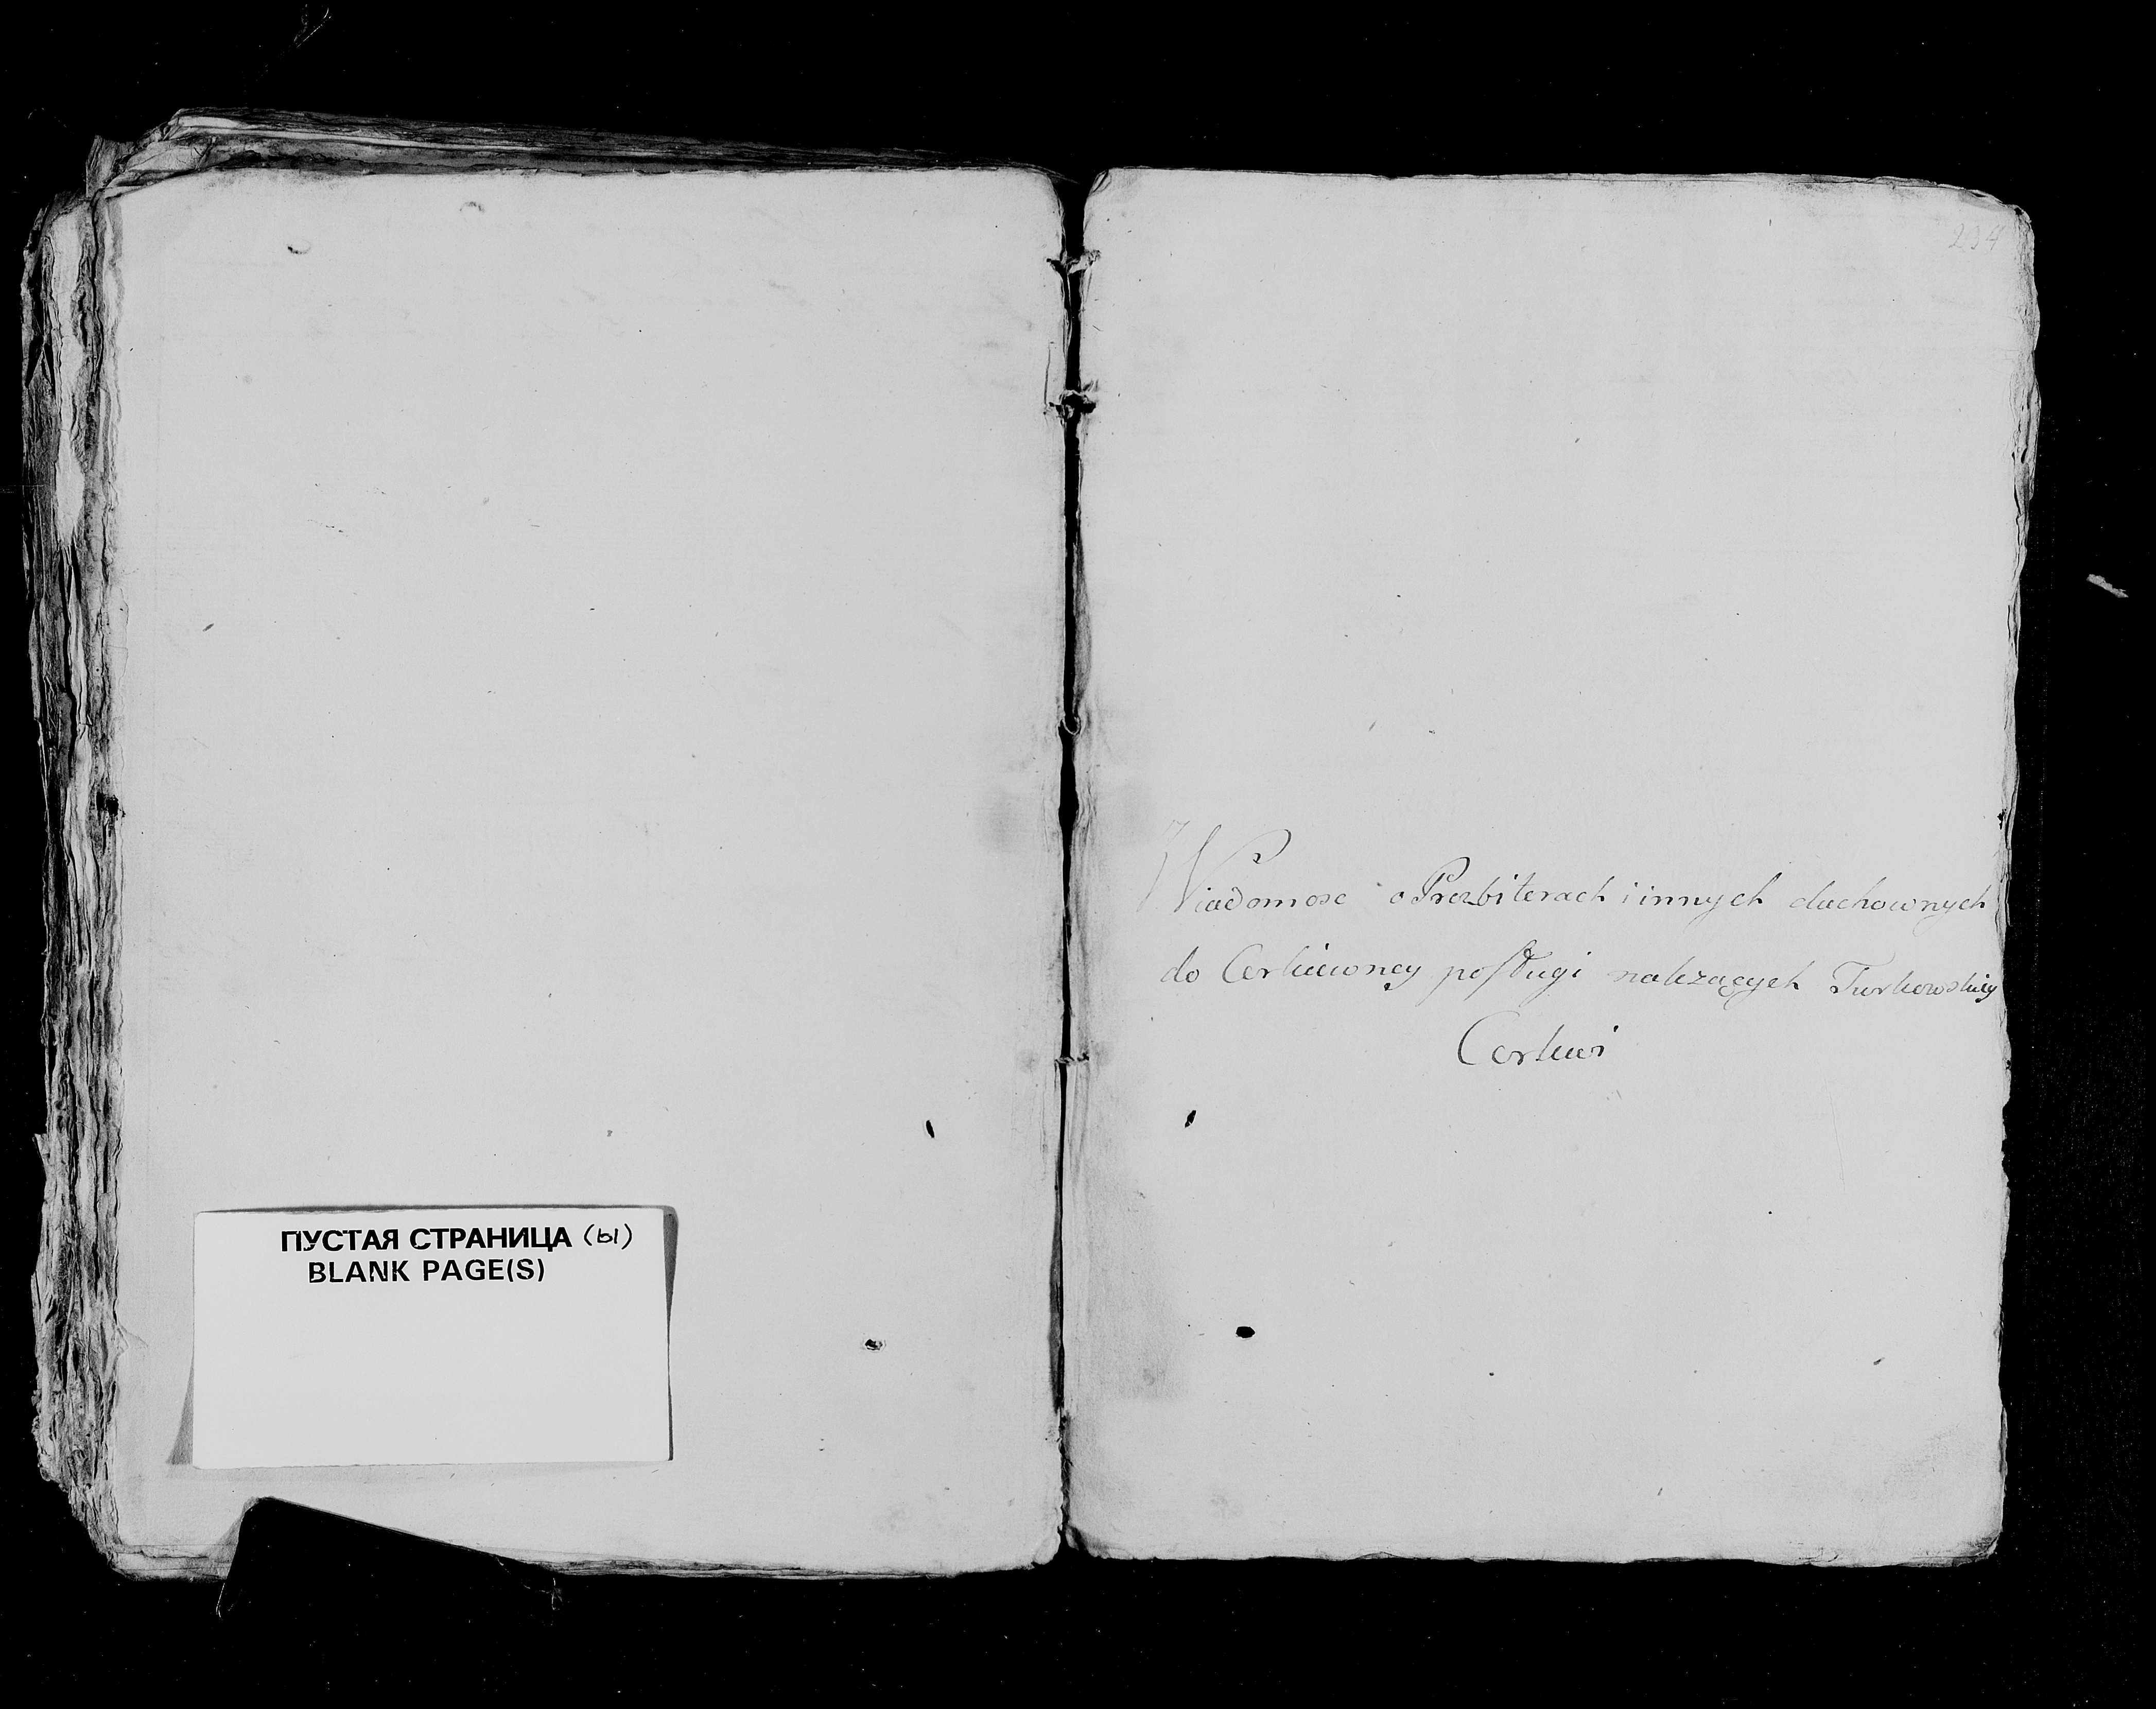 ПУСТАЯ СТРАНИЦА (ы)
BLANK PAGE(S)
234
Wiadomosc o Prezbiterach i innych duchownych
do Cerkiewney posługi nalezących Turkowskiey
Cerkwi